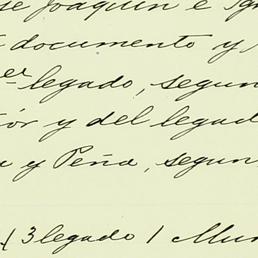 se Joaquin e Ign
documento y
er legado, segun
tor y del legad
a y Peña, segun
3 legado / Mun